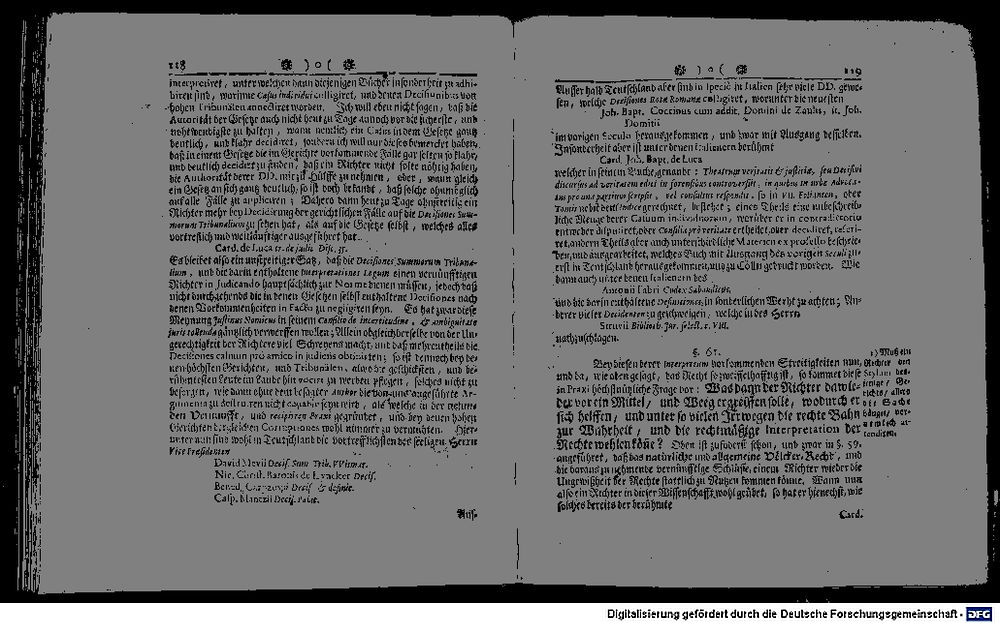 118 ) o (
interpretiret, unter welchen dann diejenigen Bücher insonderheit zu adhi-
biren sind, worinne Casus individui colligiret, und denen Decisiones von
hohen Tribunalien annectiret worden. Ich will eben nicht sagen, daß die
Autorität der Gesetze auch nicht heut zu Tage annoch vor die sicherste, und
nohtwendigste zu halten, wann nemlich ein Casus in dem Gesetz gantz
deutlich, und klahr decidiret, sondern ich will nur dieses bemercket haben,
daß in einem Gesetze die im Gerichte vorkommende Fälle gar selten so klahr,
und deutlich decidiret zu finden, daß ein Richter nicht solte nöhtig haben,
die Authorität derer DD. mit zu Hülffe zu nehmen, oder, wann gleich
ein Gesetz an sich gantz deutlich, so ist doch bekandt, daß solche ohnmöglich
auf alle Fälle zu appliciren; Dahero dann heut zu Tage ohnstreitig ein
Richter mehr bey Decidirung der gerichtlichen Fälle auf die Decisiones Sum-
morum Tribunalium zu sehen hat, als auf die Gesetze selbst, welches alles
vortreflich und weitläuftiger ausgeführet hat
Card. de Luca tr. de judic. Disc. 35.
Es bleibet also ein unstreitiger Satz, daß die Decisiones Summorum Tribuna-
lium, und die darin enthaltene Interpretationes Legum einen vernünfftigen
Richter in Judicando hauptsächlich zur Norme dienen müssen, jedoch daß
nicht durchgehends die in denen Gesetzen selbst enthaltene Decisiones nach
denen Vorkommenheiten in Facto zu negligiren seyn. Es hat zwar diese
Meynung Justinus Nonicus in seinem Consilio de incertitudine, & ambiguitate
juris tollenda gäntzlich verwerffen wollen; Allein obgleich derselbe von der Un-
gerechtigkeit der Richtere viel Schreyens macht, und daß mehrentheils die
Decisiones calnun pro amico in judiciis obtinirten; so ist dennoch bey de-
nen höchsten Gerichten, und Tribunalen, alwo die geschickten, und be-
rühmtesten Leute im Lande hin vociret zu werden pflegen, solches nicht zu
besorgen, wie dann ohne dem besagter Autor die von uns angeführte Ar-
gumenta zu destruiren nicht capable seyn wird, als welche in der natürli-
den Vernunfft, und recipirten Praxi gegründet, und bey denen hohen
Gerichten dergleichen Corruptiones wohl nimmer zu vermuhten. Hier-
unter nun sind wohl in Teutschland die vortrefflichsten des seeligen Herrn
Vice Præsidenten
David Mevii Decis. Sum. Trib. VVismar.
Nic. Christ. Baronis de Lyncker Decis.
Bened. Carpzovii Decis. & definit.
Casp. Manczii Decis. Palat.
Aus-
) o ( 119
Ausser halb Teutschland aber sind in specie in Italien sehr viele DD. gewe-
sen, welche Decisiones Rotæ Romanæ colligiret, worunter die neuesten
Joh. Bapt. Coccinus cum addit. Domini de Zaulis, it. Joh.
Domitii
im vorigen Seculo herausgekommen, und zwar mit Ausgang desselben.
Insonderheit aber ist unter denen Italienern berühmt
Card. Joh. Bapt. de Luca
welcher in seinem Buche genandt: Theatrum veritatis & justitiæ, seu Decisivi
discursus ad veritatem editi in forensibus controversiis, in quibus in urbe Advoca-
tus pro una partium scripsit, vel consultus respondit. so in VII. Folianten, oder
Tomis nebst dem Indice gerechnet, bestehet; eines Theils eine unbeschreib-
liche Menge derer Casuum individuorum, worüber er in contradictorio
entweder disputiret, oder Consilia pro veritate ertheilet, oder decidiret, referi-
ret, andern Theils aber auch unterschiedliche Materien ex professo beschrie-
ben, und ausgearbeitet, welches Buch mit Ausgang des vorigen Seculi zu-
erst in Teutschland herausgekommen, und zu Cölln gedruckt worden. Wie
dann auch unter denen Italienern des
Antonii Fabri Codex Sabaudicus,
und die darin enthaltene Definitiones, in sonderlichen Wehrt zu achten; An-
derer vieler Decidenten zu geschweigen, welche in des Herrn
Struvii Biblioth. Jur. select. c. VIII.
nachzuschlagen.
§. 61.
Bey diesen derer Interpretum vorkommenden Streitigkeiten nun,
und da, wie oben gesagt, das Recht so zweiffelhafftig ist, so kommet diese
in Praxi höchstnützliche Frage vor: Was dann der Richter dawie-
der vor ein Mittel, und Weeg ergreiffen solle, wodurch er
sich helffen, und unter so vielen Irrwegen die rechte Bahn
zur Wahrheit, und die rechtmäßige Interpretation der
Rechte wehlen könne? Oben ist zuförderst schon, und zwar in §. 59.
angeführet, daß das natürliche und allgemeine Völcker-Recht, und
die daraus zu nehmende vernünfftige Schlüsse, einem Richter wieder die
Ungewißheit der Rechte stattlich zu Nutzen kommen könne. Wann nun
also ein Richter in dieser Wissenschafft wohl geübet, so hat er hiernechst, wie
solches bereits der berühmte
Card.
1) Muß ein
Richter den
Stylum des-
jenige, Ge-
richts, allwo
die Sache
hänget, ver-
nemlich at-
tendiren.
Digitalisierung gefördert durch die Deutsche Forschungsgemeinschaft - DFG